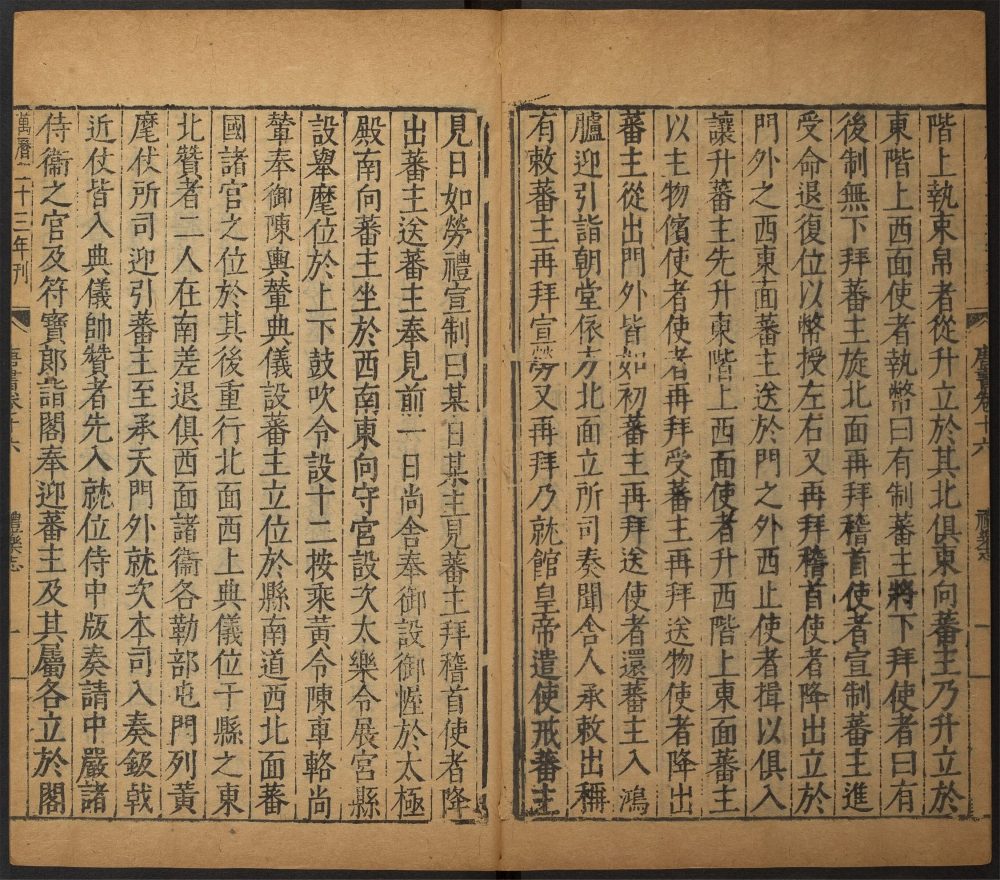 階上執束帛者從升立於其北俱東向蕃主乃升立於
東階上西面使者執幣曰有制蕃主將下拜使者曰有
後制無下拜蕃主旋北面再拜稽首使者宣制蕃主進
受命退復位以幣授左右又再拜稽首使者降出立於
門外之西東面蕃主送於門之外西止使者揖以俱入
讓升蕃主先升東階上西面使者升西階上東面蕃主
以土物儐使者使者再拜受蕃主再拜送物使者降出
蕃主從出門外皆如初蕃主再拜送使者還蕃主入鴻
臚迎引詣朝堂依方北面立所司奏聞舍人承敕出稱
有敕蕃主再拜宣勞又再拜乃就館皇帝遣使戒蕃主
見日如勞禮宣制曰某日某主見蕃主拜稽首使者降
出蕃主送蕃主奉見前一日尚舍奉御設御幄於太極
殿南向蕃主坐於西南東向守宮設次太樂令展宮縣
設舉麾位於上下鼓吹令設十二按乘黃令陳車輅尚
輦奉御陳輿輦典儀設蕃主立位於縣南道西北面蕃
國諸官之位於其後重行北面西上典儀位于縣之東
北贊者二人在南差退俱西面諸衞各勒部屯門列黃
麾仗所司迎引蕃主至承天門外就次本司入奏鈒戟
近仗皆入典儀帥贊者先入就位侍中版奏請中嚴諸
侍衞之官及符寶郞詣閤奉迎蕃主及其屬各立於閤
萬曆二十三年刊
唐書卷十六 禮樂志 一